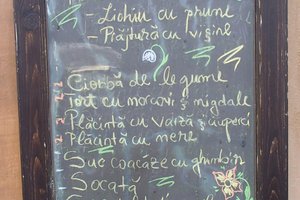 - Lichiu cu prune
- Prăjtură cu vișine
Ciorbă de legume
Tort cu morcovi și migdale
Plăcintă cu varză și ciuperci
Plăcintă cu mere
Suc coacăze cu ghimbir
Socată